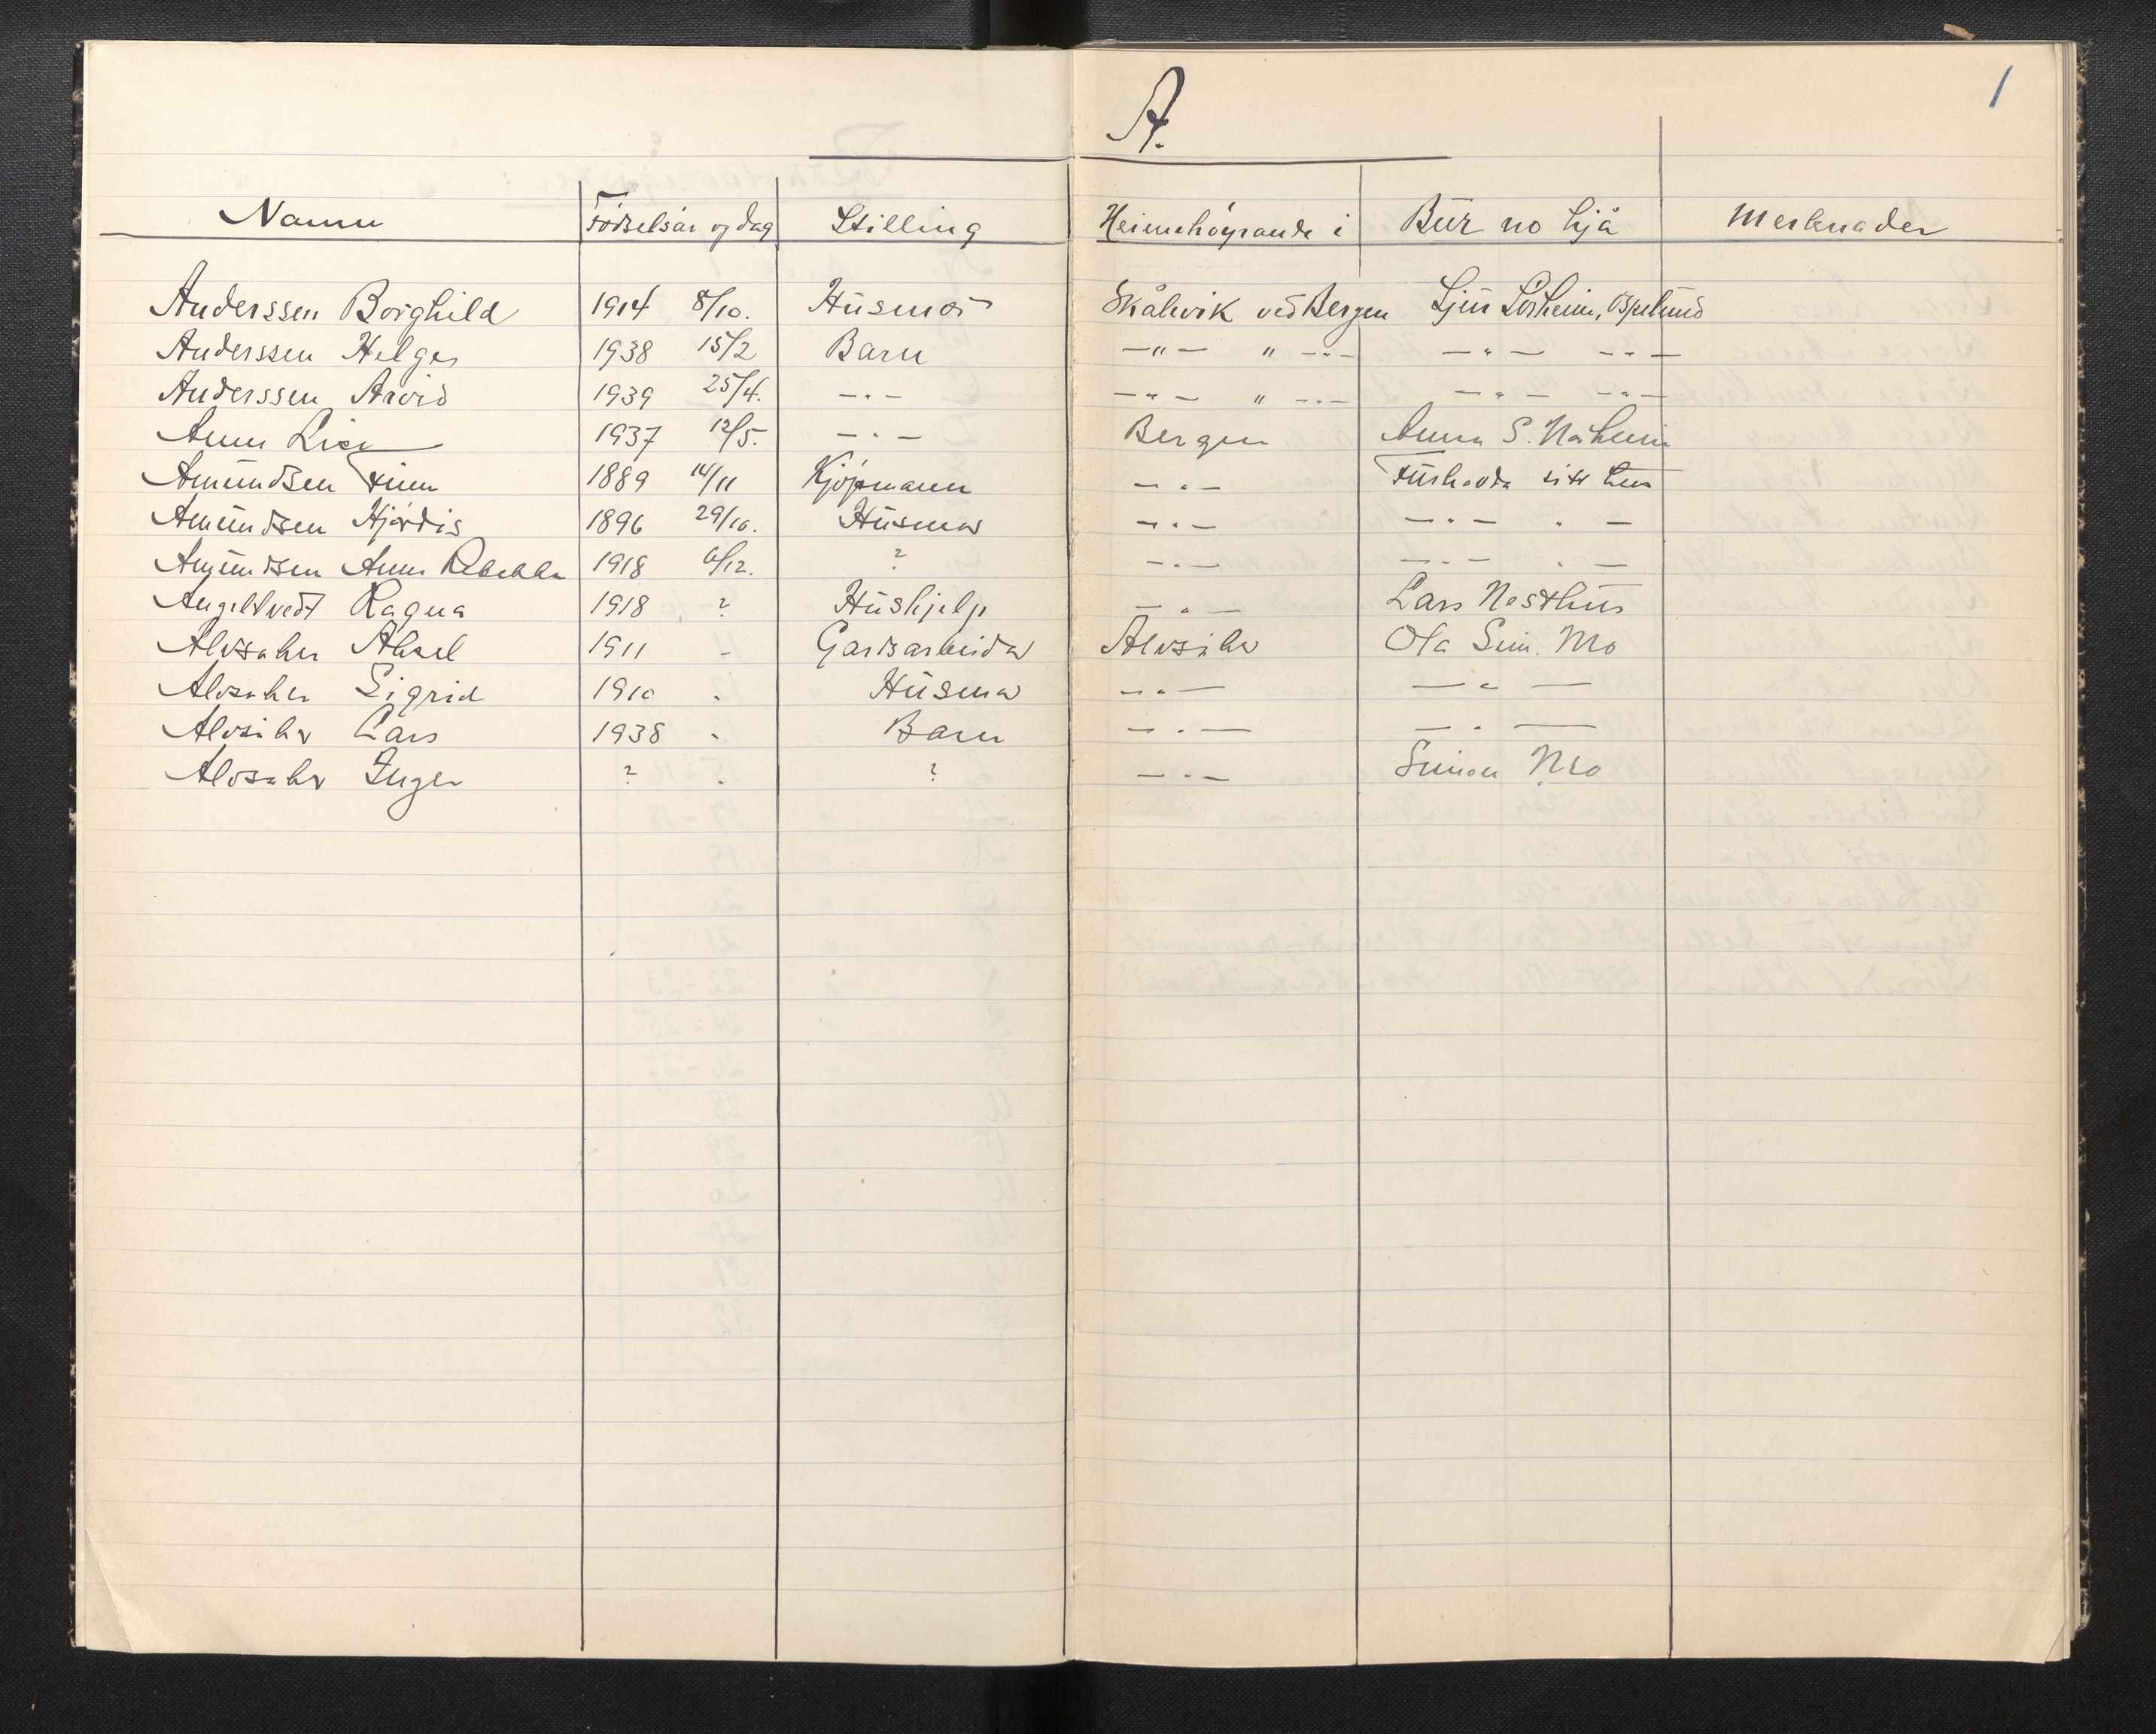 A.
1
Namn Födselsår og dag Stilling Heimehöyrande i Bur no hjå Merknader
Anderssen Borghild 1914 8/10. Husmor Skålevik ved Bergen Sjur Lösheim, Espelund
Anderssen Helge 1938 15/2 Barn —"— " —"— —"— —"—
Anderssen Arvid 1939 25/4. —"— —"— " —"— —"— —"—
Anne Lise 1937 12/5. —"— Bergen Anna S.
Amundsen Finn 1889 14/11 Kjöpmann —"— sitt hus
Amundsen Hjördis 1896 29/10. Husmor —"— —"— " —
Amundsen Anne Rebekka 1918 6/12. ? —"— —"— " —
Angeltvedt Ragna 1918 ? Hushjelp —"— Lars Nesthus
Alvsåker Aksel 1911 - Gardsarbeidar Alvsåker Ola Sim. Mo
Alvsåker Sigrid 1910 " Husmor —"— —"—
Alvsåker Lars 1938 " Barn —"— —"—
Alvsåker Inger ? " ? —"— Simon Mo